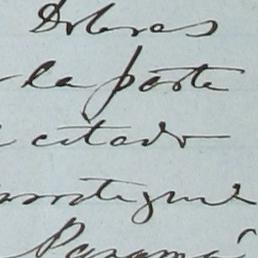 Dolores
la parte
citado
Panamá